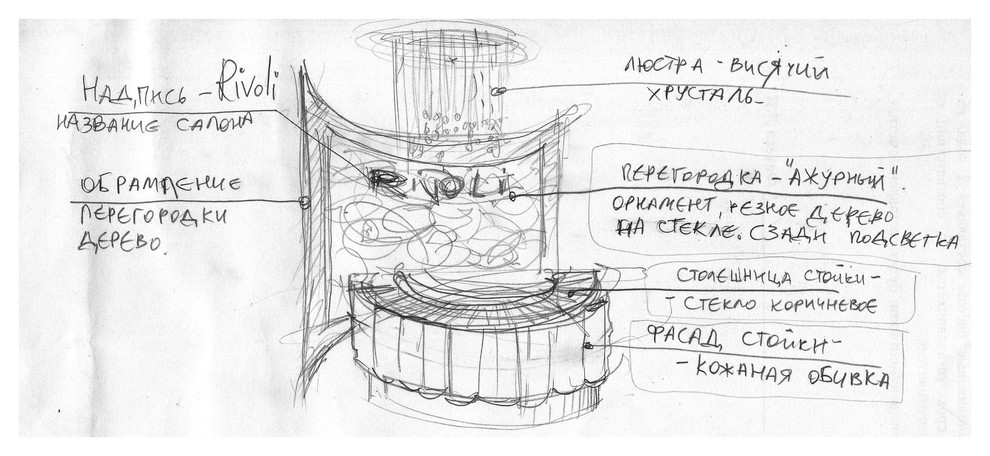 НАДПИСЬ - Rivoli
НАЗВАНИЕ САЛОНА
ОБРАМЛЕНИЕ
ПЕРЕГОРОДКИ
ДЕРЕВО.
RIVOLI
ЛЮСТРА - ВИСЯЧИЙ
ХРУСТАЛЬ-
ПЕРЕГОРОДКА - "АЖУРНЫЙ".
ОРНАМЕНТ, РЕЗНОЕ ДЕРЕВО
НА СТЕКЛЕ. СЗАДИ ПОДСВЕТКА
СТОЛЕШНИЦА СТОЙКИ-
- СТЕКЛО КОРИЧНЕВОЕ
ФАСАД СТОЙКИ-
- КОЖАНАЯ ОБИВКА